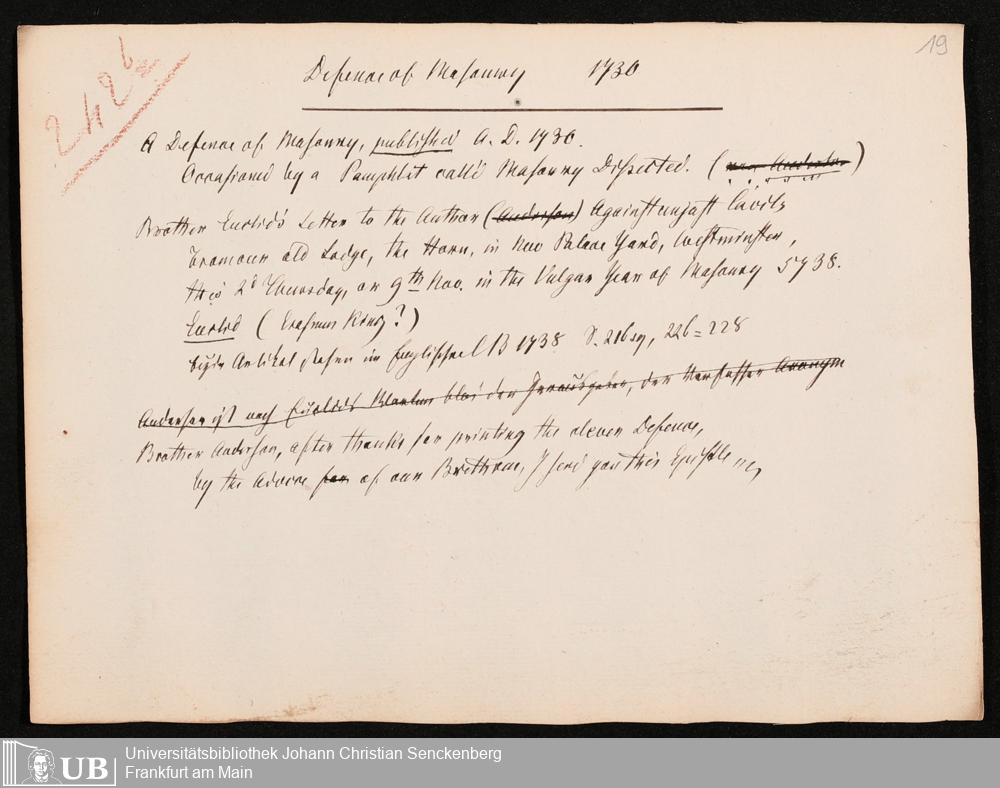 19
2426
Defence of Masonry 1730
A Defence of Masonry, published A. D. 1730.
Occasioned by a Pamphlet call'd Masonry Dissected. (von Anderson)
Brother Euclid's Letter to the Author (Anderson) Against unjust Cavils
From our old Lodge, the Horn, in New Palace Yard, Westminster,
this 2d Thursday, or 9th Nov. in the Vulgar Year of Masonry 5738.
Euclid (Erasmus King?)
beyde Artikel stehen im Englischen CB 1738 S. 216 sq, 226=228
Anderson ist nach Euclids blos der Herausgeber, der Verfasser Anonym
Brother Anderson, after thanks for printing the clever Defence,
by the Advice for of our Brethren, I send you this Epistle
Universitätsbibliothek Johann Christian Senckenberg
Frankfurt am Main
UB